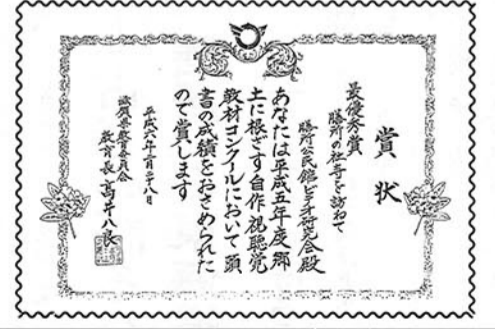 賞状
最優秀賞
膳所の社寺を訪ねて
膳所公民館ビデオ研究会殿
あなたは平成五年度郷
土に根ざす自作視聴覚
教材コンクールにおいて頭
書の成績をおさめられた
ので賞します
平成六年二月二十八日
滋賀県教育委員会
教育長高井八良